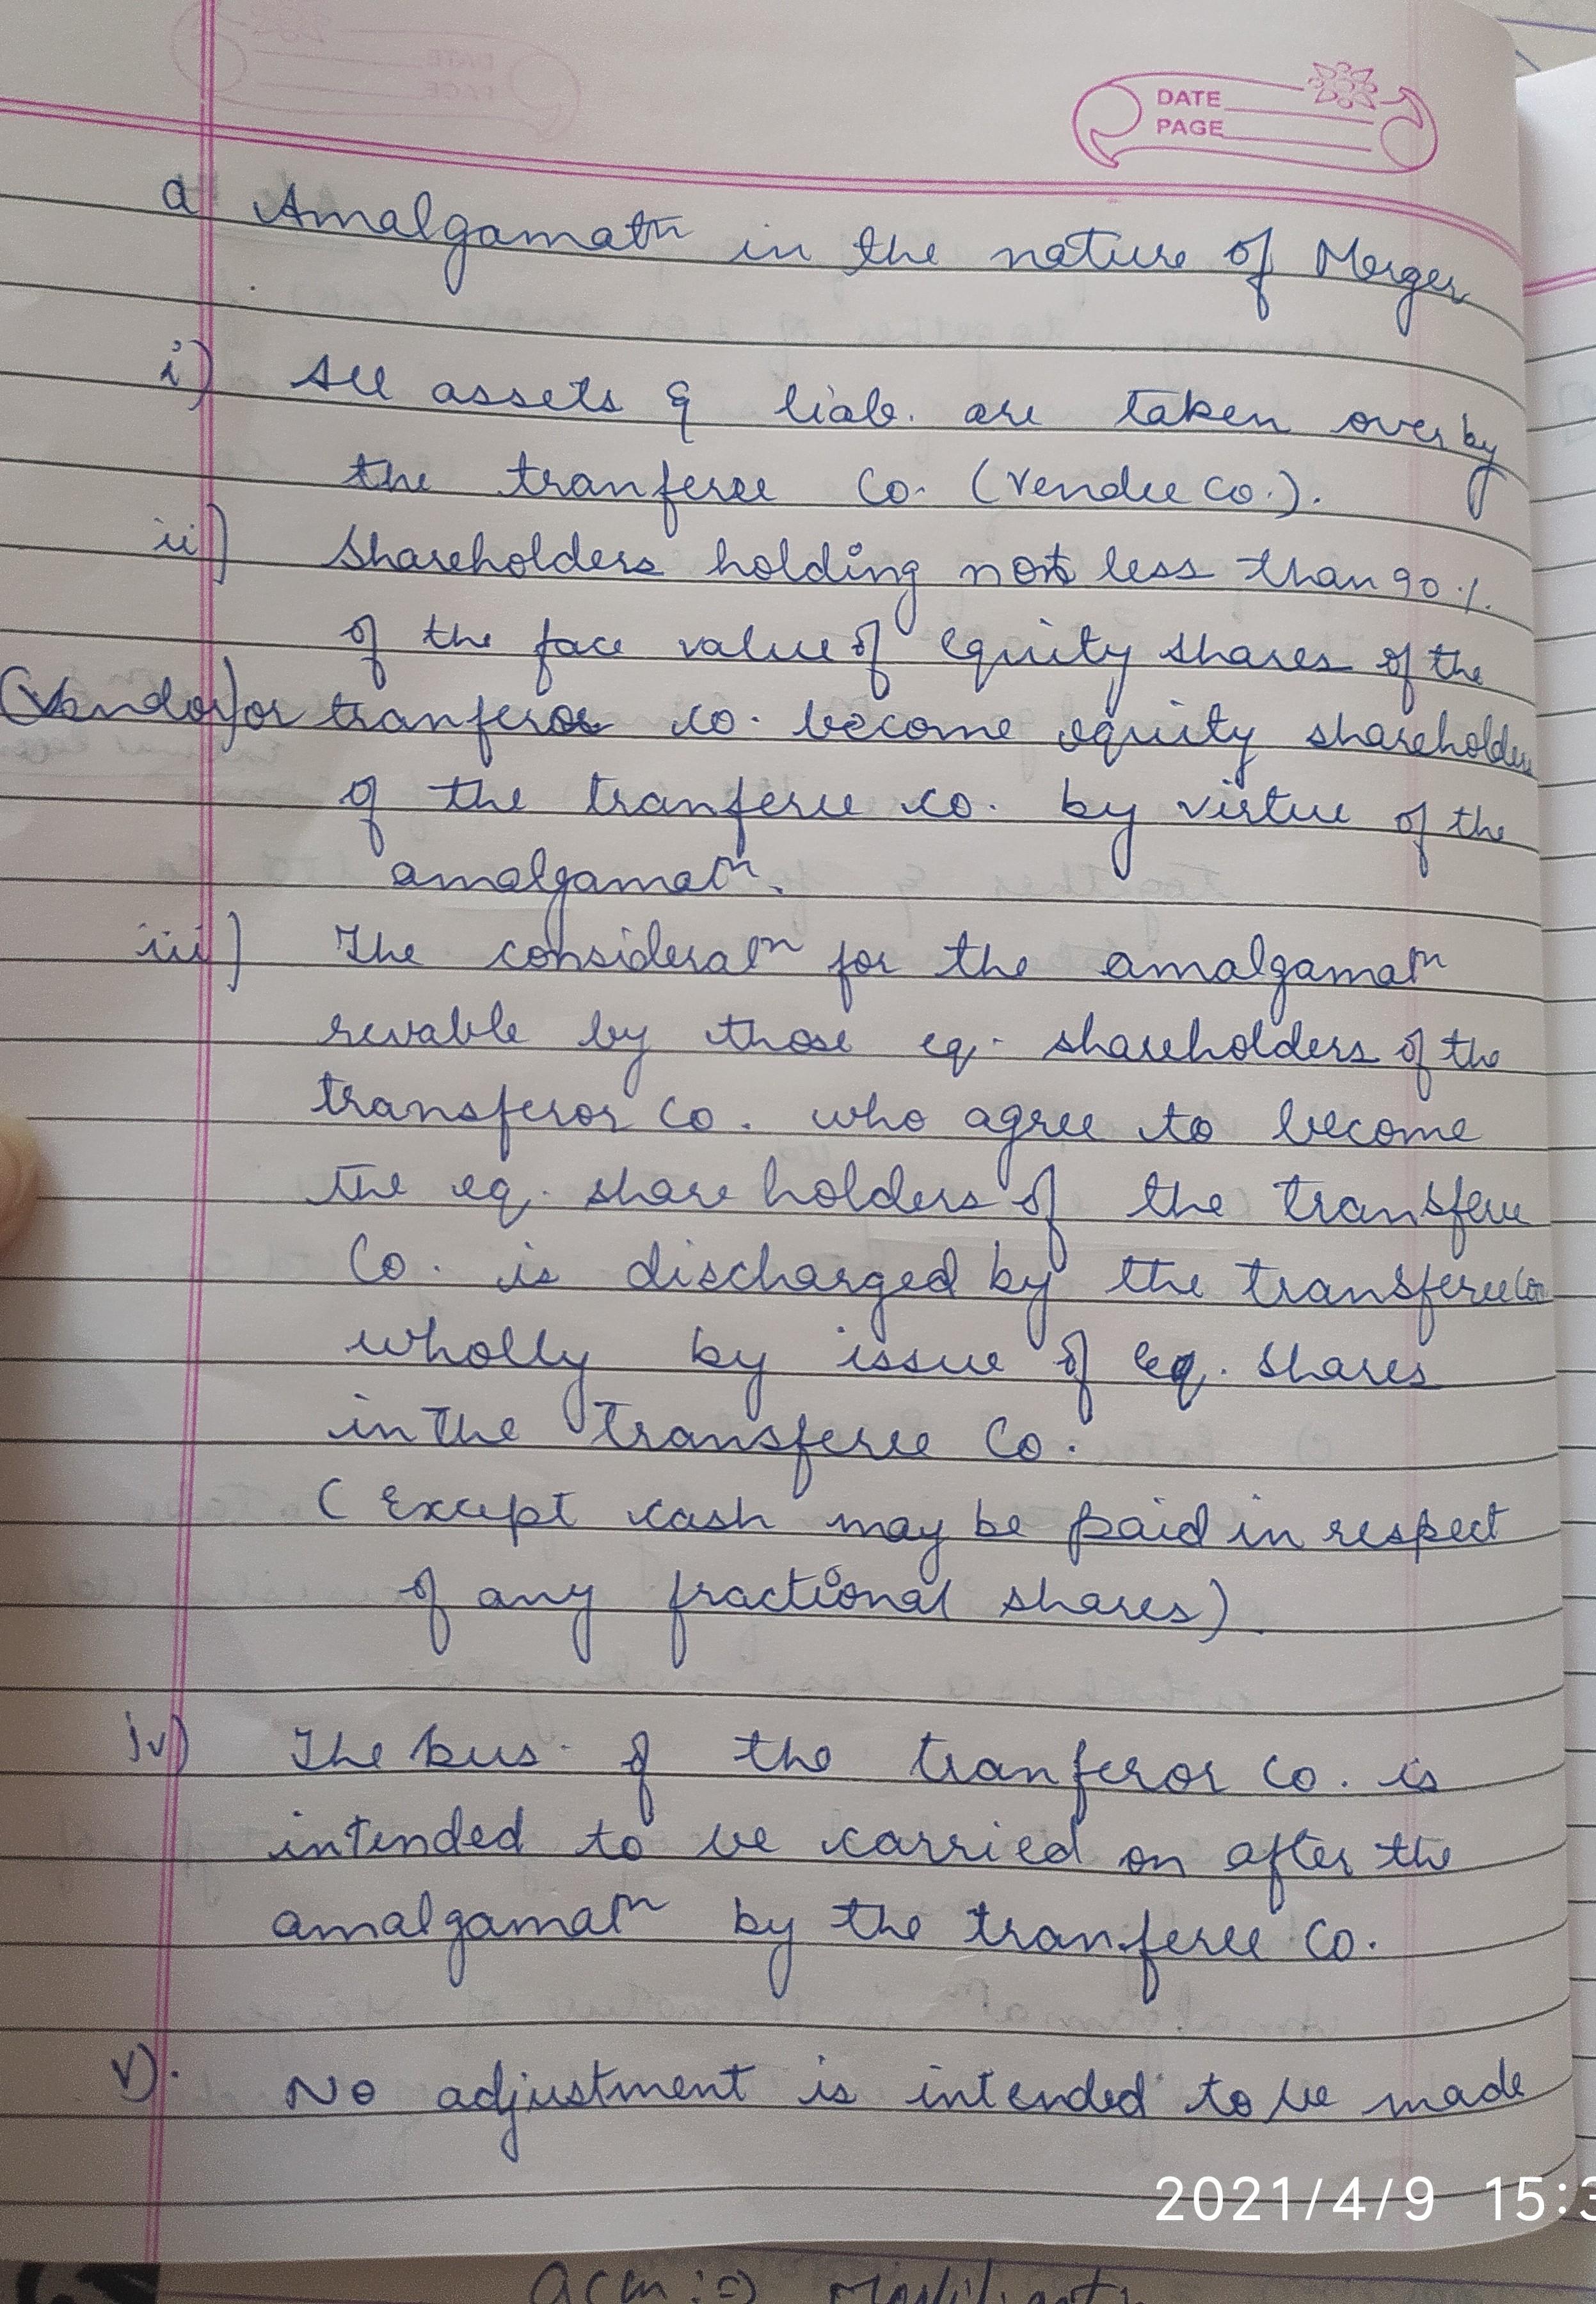 DATE
PAGE
a) Amalgamatn in the nature of Merger
i) All assets & liab. are taken over by
the tranferee Co. (Vendee Co.).
ii) Shareholders holding not less than 90%
of the face value of equity shares of the
(Vendor) or tranferor co. become equity shareholders
of the tranferee co. by virtue of the
amalgamatn.
iii) The consideratn for the amalgamatn
revable by those eq. shareholders of the
transferor Co. who agree to become
the eq. shareholders of the transferee
Co. is discharged by the transferee Co.
wholly by issue of eq. shares
in the transferee Co.
(Except cash may be paid in respect
of any fractional shares).
iv) The bus. of the tranferor Co. is
intended to be carried on after the
amalgamatn by the tranferee Co.
v). No adjustment is intended to be made
2021/4/9 15:3